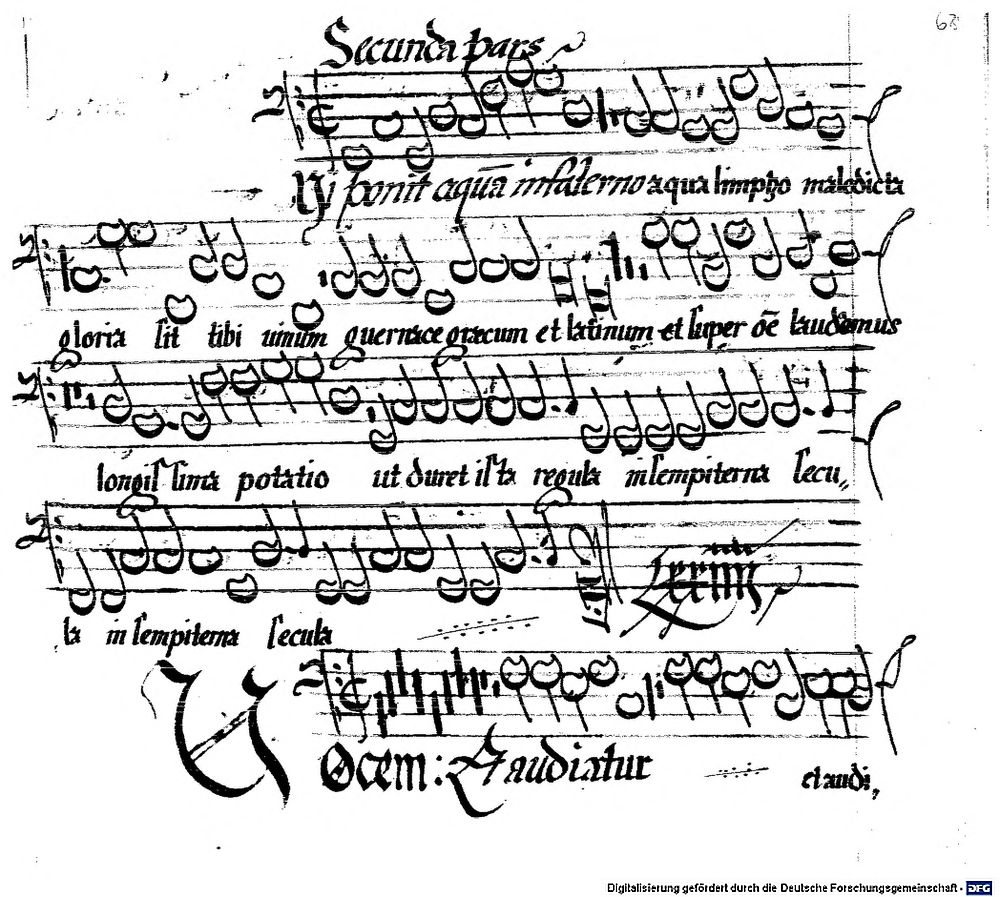 68
Secunda pars
Qui ponit aquā in falerno aqua limpho maledicta
gloria sit tibi uinum guernace grecum et latinum et super oē laudamus
longissima potatio ut duret ista regula in sempiterna secu„
la in sempiterna secula
Lxxiiii
Vocem: Laudiatur et audi„
Digitalisierung gefördert durch die Deutsche Forschungsgemeinschaft - DFG